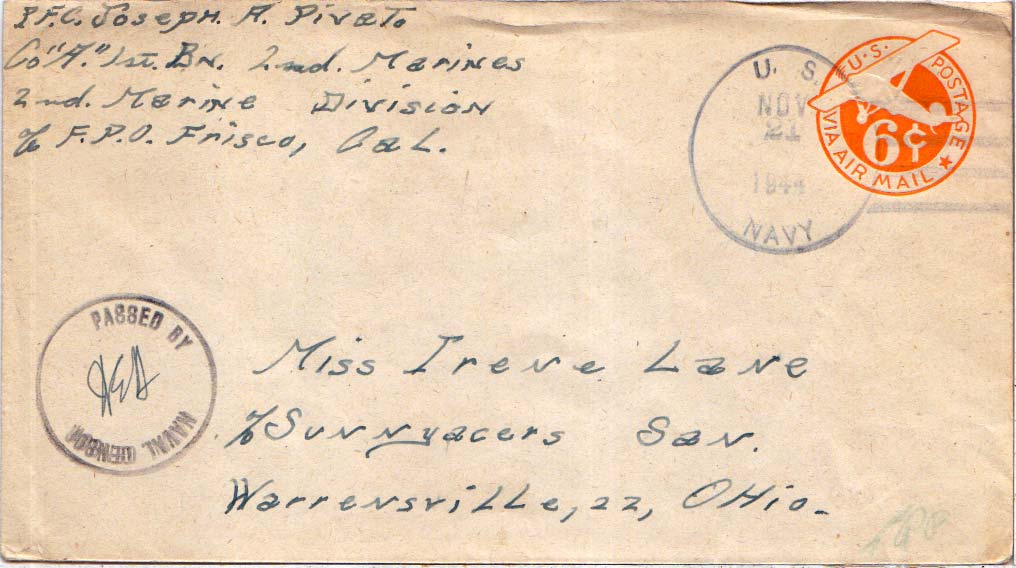 P.F.C. Joseph. A. Pivato
Co "A." 1st. Bn. 2nd. Marines
2nd. Marine Division
c/o F.P.O. Frisco, Cal.
U. S.
NOV
21
1944
NAVY
U.S. POSTAGE
6¢
VIA AIR MAIL
PASSED BY
NAVAL CENSOR
Miss Irene Lane
c/o Sunnyacers San.
Warrensville, 22, Ohio.